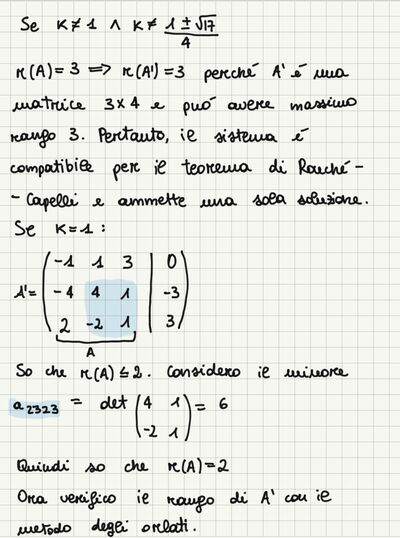 Se K≠1 ∧ K≠ (1±√17)/4
r(A)=3 ⟹ r(A')=3 perché A' é una
matrice 3×4 e puó avere massimo
rango 3. Pertanto, il sistema é
compatibile per il teorema di Rouché-
-Capelli e ammette una sola soluzione.
Se K=1:
-1 1 3 | 0
A'= -4 4 1 | -3
2 -2 1 | 3
A
So che r(A)≤2. Considero il minore
a2323 = det (4 1 = 6
-2 1)
Quindi so che r(A)=2
Ora verifico il rango di A' con il
metodo degli orlati.